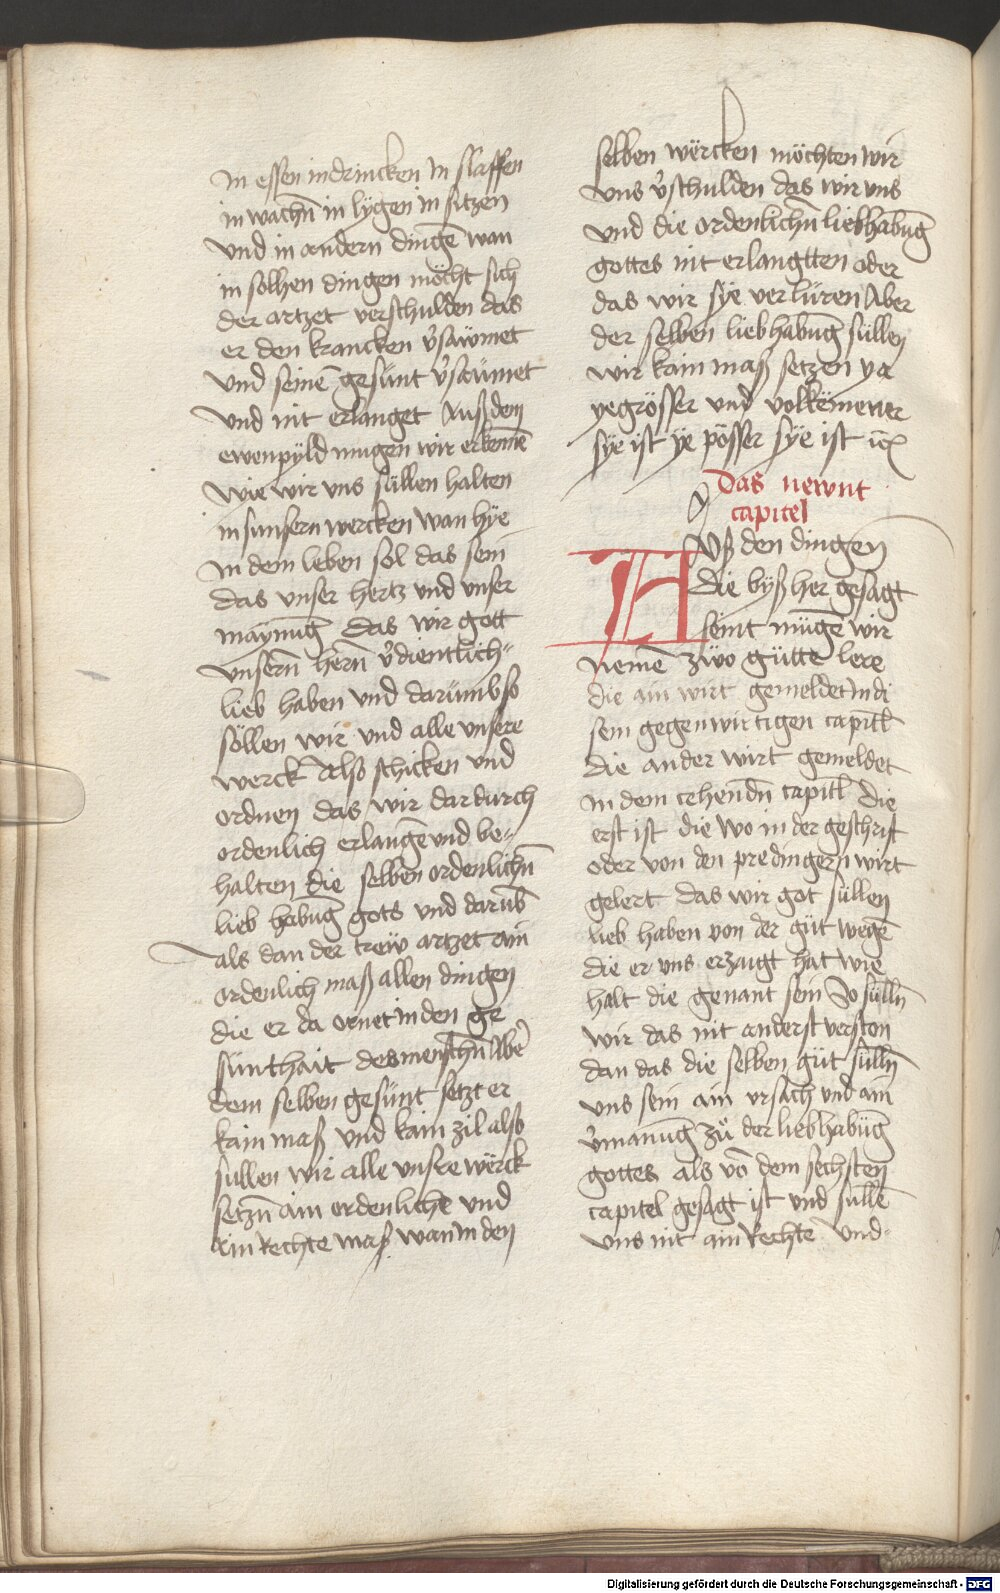 in essen in drincken in slaffen
in wachn̄ in lÿgen in sitzen
vnd in andern dingē wan
in solhen dingen möcht sich
der artzet verschulden das
er den krancken v̓säwmet
vnd seinē gesünt v̓säumet
vnd nit erlanget Auß dem
ewenpÿld mugen wir erkenē
wie wir vns süllen halten
in sunsern wercken wan hÿe
in dem leben sol das sein
das vnser hertz vnd vnser
maÿnūg das wir gott
vnsern̄ hern̄ v̓dientlich
lieb haben vnd darümb so
söllen wir vnd alle vnsere
werck Also schicken vnd
ordnen das wir dar durch
ordenlich erlangē vnd be-
halten die selben ordenlichn̄
lieb habūg gots vnd darūb
als dan der trew artzet ain
ordenlich maß allen dingen
die er da ornet in den ge
sünthait des menschn̄ Abe̓
dem selben gesünt setzt er
kain maß vnd kain zil also
süllen wir alle vnsre wërck
setzn̄ ain ordenlichē vnd
ain Rechte maß wan in den
selben wërcken möchten wir
vns v̓schulden das wir vns
vnd die ordenlichn̄ liebhabūg
gottes nit erlangtten oder
das wir sÿe verlüren Aber
der selben liebhabūg süllen
wir kain maß setzen ya
ye grösser vnd volkömener
sÿe ist ÿe pösser sÿe ist ⁊c
Das newnt
capitel
Auß den dingen
die byß her gesagt
seint mügē wir
nemē zwo gütte lere
die ain wirt gemeldet in di
sem gegenwirtigen capitl̄
die ander wirt gemeldet
in dem cehendn̄ capitl̄ die
erst ist die wo in der geschrift
oder von den predingern wirt
gelert das wir got süllen
lieb haben von der güt wegē
die er vns erzaigt hat wie
halt die genant sein So sülln̄
wir das nit anderst verston
dan das die selben güt sülln̄
vns sein ain vrsach vnd ain
v̓manūg zů der liebhabūg
gottes als vō dem sechsten
capitel gesagt ist vnd süllē
vns nit ain Rechte vnd